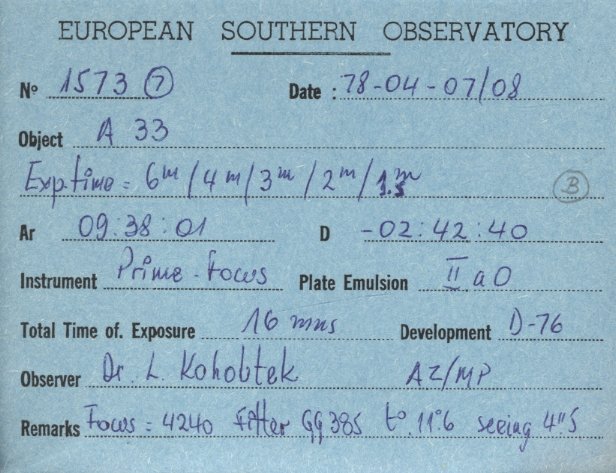 EUROPEAN SOUTHERN OBSERVATORY
Nº 1573 ⑦ Date : 78-04-07/08
Object A 33
Exp.time = 6m / 4m / 3m / 2m / 1.5m Ⓑ
Ar 09:38:01 D -02:42:40
Instrument Prime-Focus Plate Emulsion II a O
Total Time of. Exposure 16 mns Development D-76
Observer Dr. L. Kohoutek AZ/MP
Remarks Focus = 4240 Filter GG385 t° 11°6 seeing 4"5